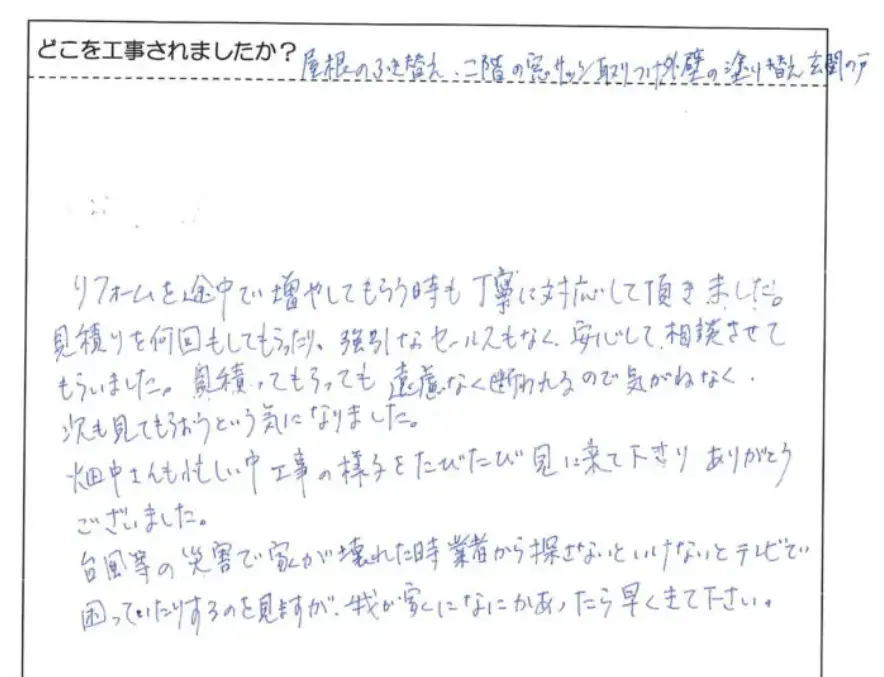 どこを工事されましたか？屋根のふき替え、二階の窓サッシ取りつけ外壁の塗り替え玄関の戸
リフォームを途中で増やしてもらう時も丁寧に対応して頂きました。
見積りを何回もしてもらったり、強引なセールスもなく、安心して相談させて
もらいました。見積ってもらっても遠慮なく断われるので気がねなく、
次も見てもらおうという気になりました。
畑中さんも忙しい中工事の様子をたびたび見に来て下さりありがとう
ございました。
台風等の災害で家が壊れた時業者から探さないといけないとテレビで
困っていたりするのを見ますが、我が家になにかあったら早く来て下さい。